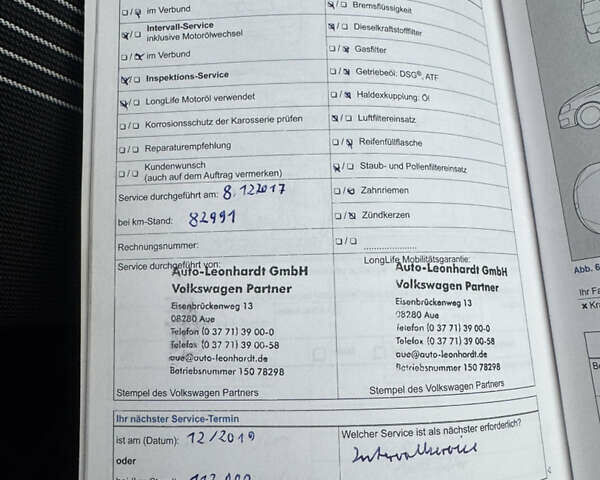 im Verbund
Bremsflüssigkeit
Intervall-Service
inklusive Motorölwechsel
Dieselkraftstofffilter
im Verbund
Gasfilter
Inspektions-Service
Getriebeöl: DSG®, ATF
LongLife Motoröl verwendet
Haldexkupplung: Öl
Korrosionsschutz der Karosserie prüfen
Luftfiltereinsatz
Reparaturempfehlung
Reifenfüllflasche
Kundenwunsch
(auch auf dem Auftrag vermerken)
Staub- und Pollenfiltereinsatz
Service durchgeführt am: 8.122017
Zahnriemen
bei km-Stand: 82991
Zündkerzen
Rechnungsnummer:
Service durchgeführt von:
Auto-Leonhardt GmbH
Volkswagen Partner
Eisenbrückenweg 13
08280 Aue
Telefon (0 37 71) 39 00-0
Telefax (0 37 71) 39 00-58
aue@auto-leonhardt.de
Betriebsnummer 150 78298
Stempel des Volkswagen Partners
LongLife Mobilitätsgarantie:
Auto-Leonhardt GmbH
Volkswagen Partner
Eisenbrückenweg 13
08280 Aue
Telefon (0 37 71) 39 00-0
Telefax (0 37 71) 39 00-58
aue@auto-leonhardt.de
Betriebsnummer 150 78298
Stempel des Volkswagen Partners
Ihr nächster Service-Termin
ist am (Datum): 12/2019
oder
Welcher Service ist als nächster erforderlich?
Intervallservice
Abb. 6
Ihr Fa